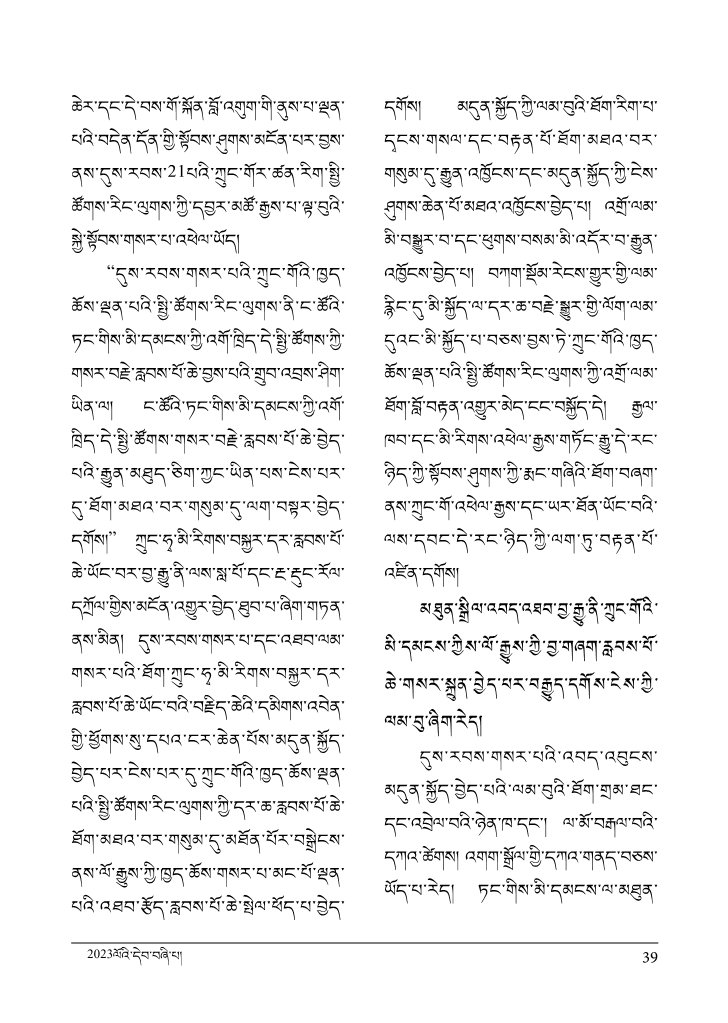 ཆེར་དང་དེ་བས་གོ་སྐོན་བློ་འགུག་གི་ནུས་པ་ལྡན་
པའི་བདེན་དོན་གྱི་སྟོབས་ཤུགས་མངོན་པར་བྱས་
ནས་དུས་རབས་21པའི་ཀྲུང་གོར་ཚན་རིག་སྤྱི་
ཚོགས་རིང་ལུགས་ཀྱི་དབྱར་མཚོ་རྒྱས་པ་ལྟ་བུའི་
སྐྱེ་སྟོབས་གསར་པ་འཕེལ་ཡོད།
“དུས་རབས་གསར་པའི་ཀྲུང་གོའི་ཁྱད་
ཆོས་ལྡན་པའི་སྤྱི་ཚོགས་རིང་ལུགས་ནི་ང་ཚོའི་
ཏང་གིས་མི་དམངས་ཀྱི་འགོ་ཁྲིད་དེ་སྤྱི་ཚོགས་ཀྱི་
གསར་བརྗེ་རླབས་པོ་ཆེ་བྱས་པའི་གྲུབ་འབྲས་ཤིག་
ཡིན་ལ། ང་ཚོའི་ཏང་གིས་མི་དམངས་ཀྱི་འགོ་
ཁྲིད་དེ་སྤྱི་ཚོགས་གསར་བརྗེ་རླབས་པོ་ཆེ་བྱེད་
པའི་རྒྱུན་མཐུད་ཅིག་ཀྱང་ཡིན་པས་ངེས་པར་
དུ་ཐོག་མཐའ་བར་གསུམ་དུ་ལག་བསྟར་བྱེད་
དགོས།” ཀྲུང་ཧྭ་མི་རིགས་བསྐྱར་དར་རླབས་པོ་
ཆེ་ཡོང་བར་བྱ་རྒྱུ་ནི་ལས་སླ་པོ་དང་རྔ་རྡུང་རོལ་
དཀྲོལ་གྱིས་མངོན་འགྱུར་བྱེད་ཐུབ་པ་ཞིག་གཏན་
ནས་མིན། དུས་རབས་གསར་པ་དང་འཐབ་ལམ་
གསར་པའི་ཐོག་ཀྲུང་ཧྭ་མི་རིགས་བསྐྱར་དར་
རླབས་པོ་ཆེ་ཡོང་བའི་བརྗིད་ཆེའི་དམིགས་འབེན་
གྱི་ཕྱོགས་སུ་དཔའ་ངར་ཆེན་པོས་མདུན་སྐྱོད་
བྱེད་པར་ངེས་པར་དུ་ཀྲུང་གོའི་ཁྱད་ཆོས་ལྡན་
པའི་སྤྱི་ཚོགས་རིང་ལུགས་ཀྱི་དར་ཆ་རླབས་པོ་ཆེ་
ཐོག་མཐའ་བར་གསུམ་དུ་མཐོན་པོར་བསྒྲེངས་
ནས་ལོ་རྒྱུས་ཀྱི་ཁྱད་ཆོས་གསར་པ་མང་པོ་ལྡན་
པའི་འཐབ་རྩོད་རླབས་པོ་ཆེ་སྤེལ་ཕོད་པ་བྱེད་
དགོས། མདུན་སྐྱོད་ཀྱི་ལམ་བུའི་ཐོག་རིག་པ་
དྭངས་གསལ་དང་བརྟན་པོ་ཐོག་མཐའ་བར་
གསུམ་དུ་རྒྱུན་འཁྱོངས་དང་མདུན་སྐྱོད་ཀྱི་ངེས་
ཤུགས་ཆེན་པོ་མཐའ་འཁྱོངས་བྱེད་པ། འགྲོ་ལམ་
མི་བསྒྱུར་བ་དང་ཕུགས་བསམ་མི་འདོར་བ་རྒྱུན་
འཁྱོངས་བྱེད་པ། བཀག་སྡོམ་རེངས་གྱུར་གྱི་ལམ་
རྙིང་དུ་མི་སྐྱོད་ལ་དར་ཆ་བརྗེ་སྒྱུར་གྱི་ལོག་ལམ་
དུའང་མི་སྐྱོད་པ་བཅས་བྱས་ཏེ་ཀྲུང་གོའི་ཁྱད་
ཆོས་ལྡན་པའི་སྤྱི་ཚོགས་རིང་ལུགས་ཀྱི་འགྲོ་ལམ་
ཐོག་བློ་བརྟན་འགྱུར་མེད་ངང་བསྐྱོད་དེ། རྒྱལ་
ཁབ་དང་མི་རིགས་འཕེལ་རྒྱས་གཏོང་རྒྱུ་དེ་རང་
ཉིད་ཀྱི་སྟོབས་ཤུགས་ཀྱི་རྨང་གཞིའི་ཐོག་བཞག་
ནས་ཀྲུང་གོ་འཕེལ་རྒྱས་དང་ཡར་ཐོན་ཡོང་བའི་
ལས་དབང་དེ་རང་ཉིད་ཀྱི་ལག་ཏུ་བརྟན་པོ་
འཛིན་དགོས།
མཐུན་སྒྲིལ་འབད་འཐབ་བྱ་རྒྱུ་ནི་ཀྲུང་གོའི་
མི་དམངས་ཀྱིས་ལོ་རྒྱུས་ཀྱི་བྱ་གཞག་རླབས་པོ་
ཆེ་གསར་སྐྲུན་བྱེད་པར་བརྒྱུད་དགོས་ངེས་ཀྱི་
ལམ་བུ་ཞིག་རེད།
དུས་རབས་གསར་པའི་འབད་འབུངས་
མདུན་སྐྱོད་བྱེད་པའི་ལམ་བུའི་ཐོག་གྲམ་ཐང་
དང་འབྲེལ་བའི་ཉེན་ཁ་དང་། ལ་མོ་བརྒལ་བའི་
དཀའ་ཚེགས། འགག་སྒྲོལ་གྱི་དཀའ་གནད་བཅས་
ཡོད་པ་རེད། ཏང་གིས་མི་དམངས་ལ་མཐུན་
2023ལོའི་དེབ་བཞི་པ།
39